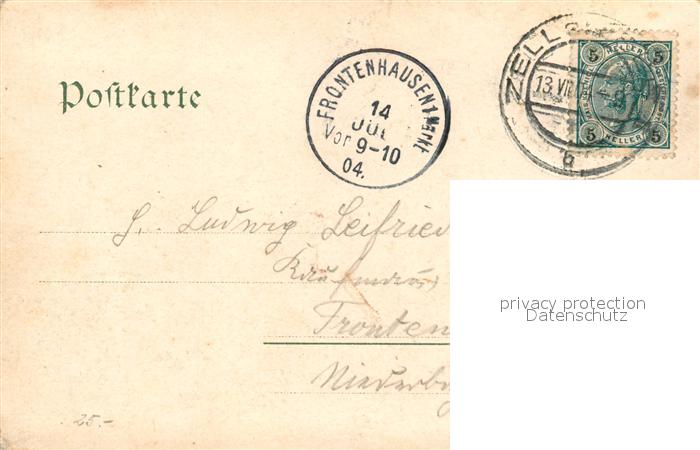 Postkarte
FRONTENHAUSEN 1 Markt
14
JUL
Vor 9-10
04.
ZELL
13.VII
b
5 HELLER 5
5 HELLER 5
H. Ludwig Leifried
Kaufmann
Fronten
Niederb
25.-
privacy protection
Datenschutz